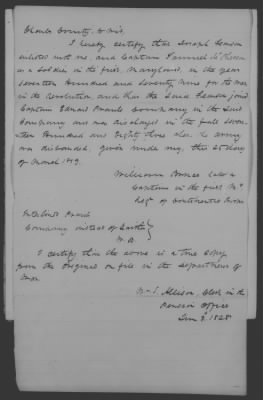 Charles County, to wit,
I hereby certify that Joseph
enlisted with me, and Captain Samuel McPherson
as a Soldier in the first Maryland, in the year
Seventeen Hundred and Seventy nine for the War
in the Revolution, and that the Said joined
Captain Edward Company in the Said
Company and was discharged in the fall Seven-
teen Hundred and Eighty three when the army
was disbanded. Given under my, this 25 day
of March 1819.
William Late a
Captain in the first Md
Regt of Continental
Company instead of
I certify that the above is a true Copy
from the Original on file in the department of
War
Wm S. Allison, Clerk in the
Pension Office
1828